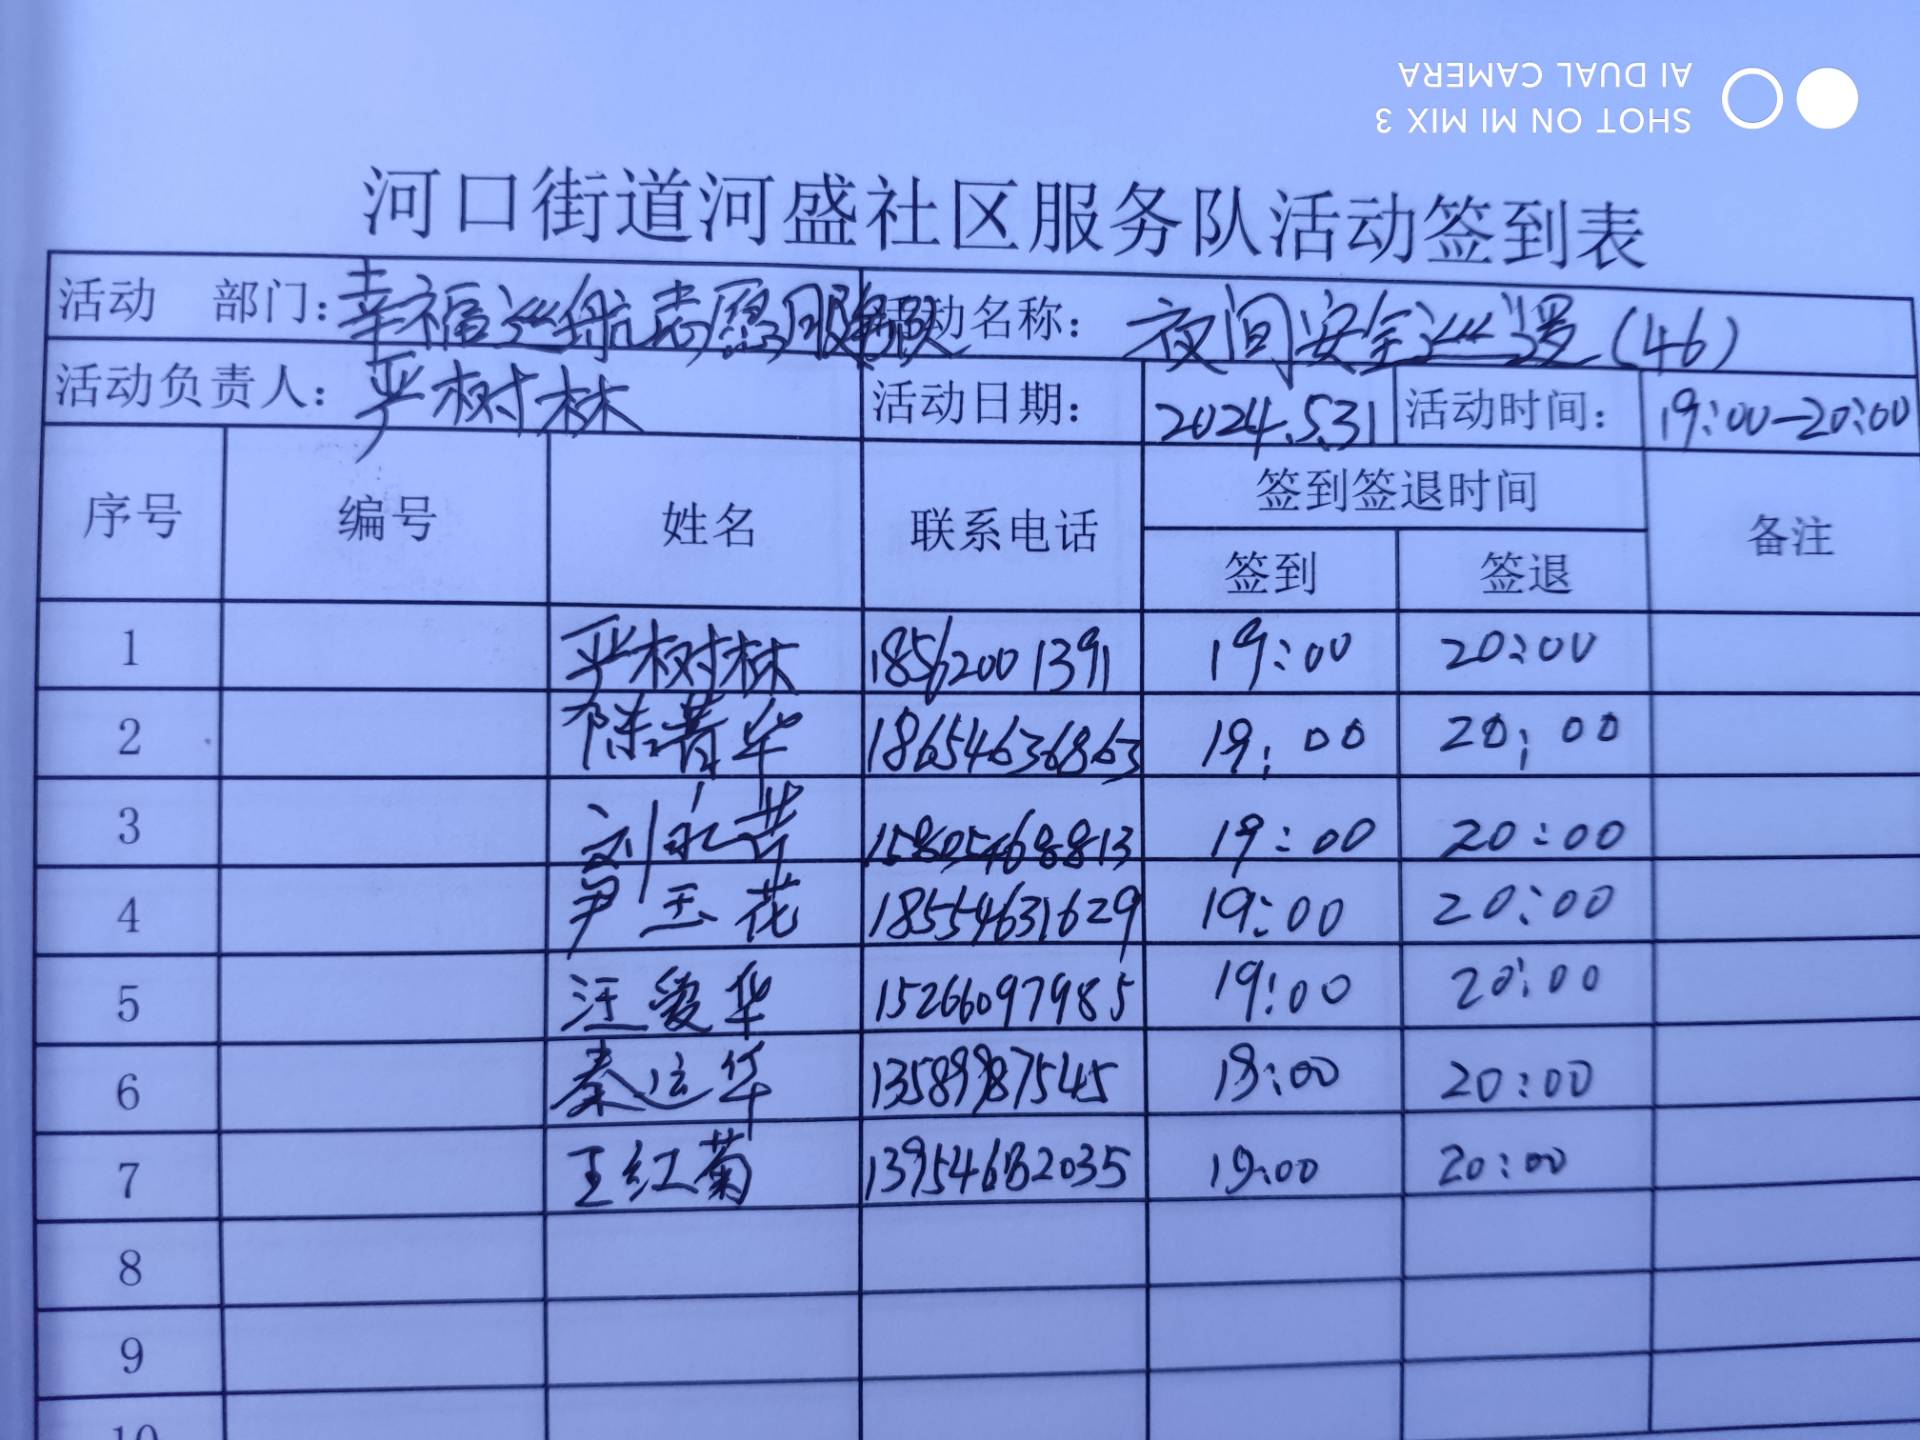 AI DUAL CAMERA
SHOT ON MI MIX 3
河口街道河盛社区服务队活动签到表
活动 部门：幸福巡航志愿服务队 活动名称：夜间安全巡逻(46)
活动负责人：严树林 活动日期： 2024.5.31 活动时间： 19:00-20:00
序号 编号 姓名 联系电话 签到签退时间 备注
签到 签退
1 严树林 18562001391 19:00 20:00
2 陈菁华 18654636863 19:00 20:00
3 刘永芳 15805468813 19:00 20:00
4 尹玉花 18554631629 19:00 20:00
5 汪爱华 15266097985 19:00 20:00
6 秦运华 13589987545 19:00 20:00
7 王红菊 13954682035 19:00 20:00
8
9
10